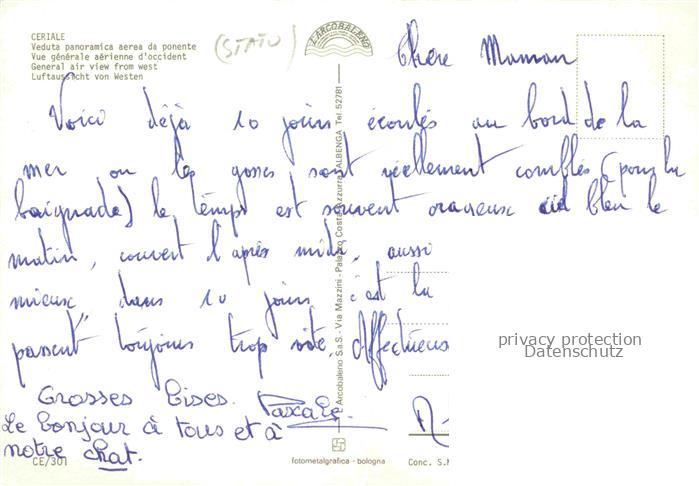 CERIALE
Veduta panoramica aerea da ponente
Vue générale aérienne d'occident
General air view from west
Luftansicht von Westen
(STATO)
L'ARCOBALENO
Chère Maman
Voici déjà 10 jours écoulés au bord de la
mer ou les gosses sont réellement comblés (pour la
baignade) le temps est souvent orageux ciel bleu le
matin, couvert l'après midi, aussi
mieux dans 10 jours c'est la
passent toujours trop vite. Affectueus
Grosses bises. Pascale.
Le bonjour à tous et à
notre chat.
Arcobaleno S.a.S. - Via Mazzini - Palazzo Costa Azzurra ALBENGA Tel. 52781
privacy protection
Datenschutz
CE/301
fotometalgrafica - bologna
Conc. S.